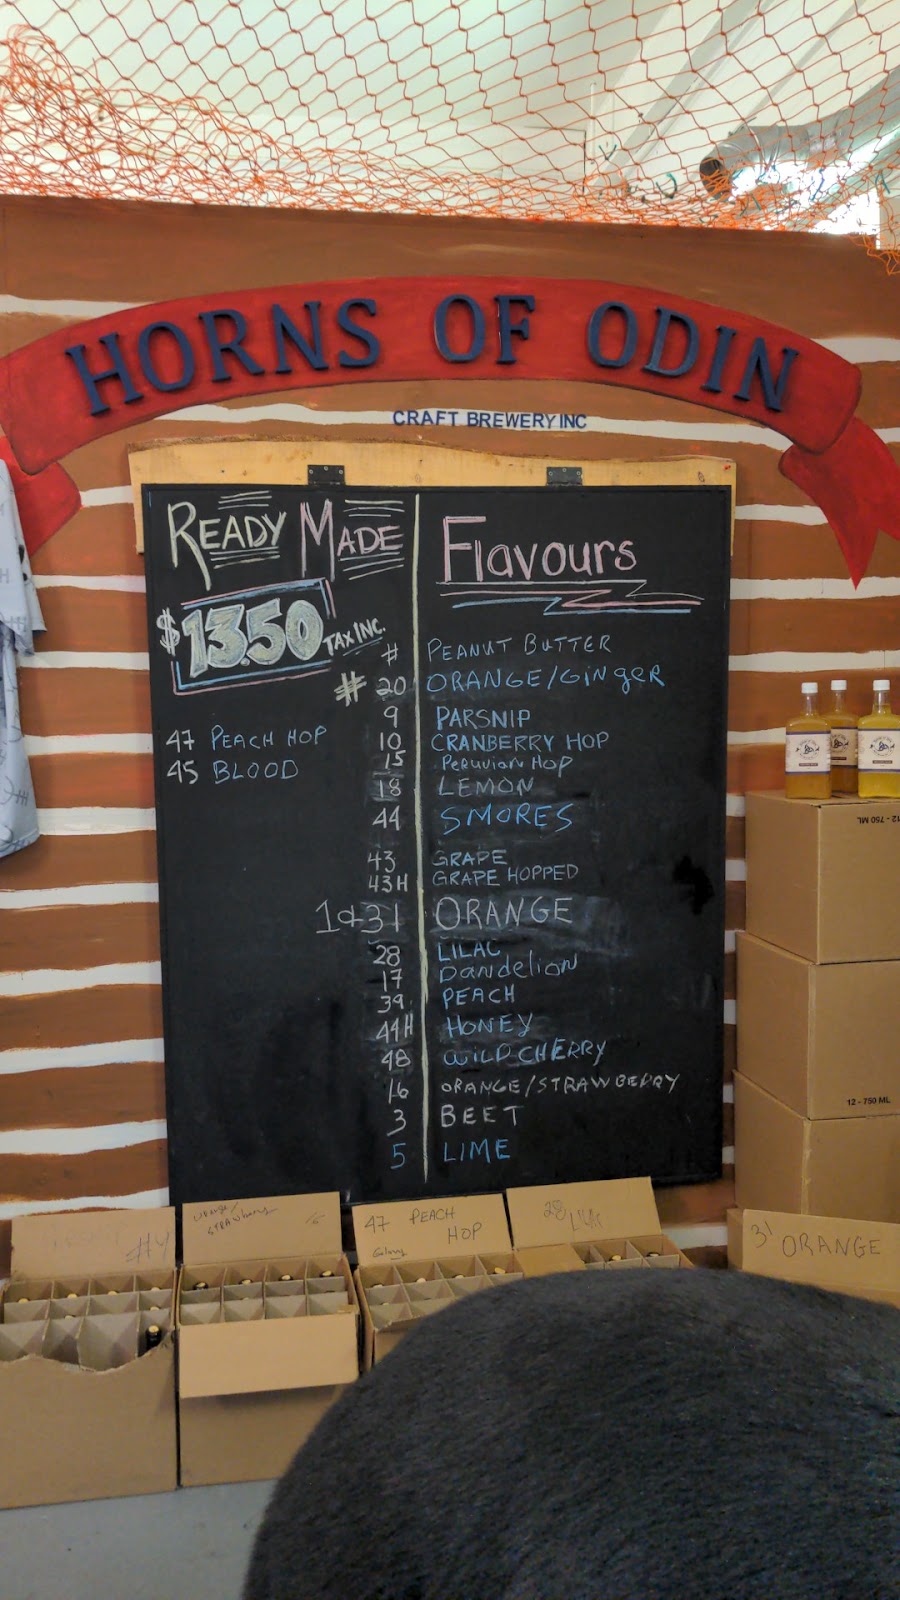 HORNS OF ODIN
CRAFT BREWERY INC
READY MADE
$13.50 TAX INC.
47 PEACH HOP
45 BLOOD
Flavours
# PEANUT BUTTER
# 20 ORANGE/GINGER
9 PARSNIP
10 CRANBERRY HOP
15 Peruvian Hop
18 LEMON
44 SMORES
43 GRAPE
43H GRAPE HOPPED
1&31 ORANGE
28 LILAC
17 Dandelion
39 PEACH
44H HONEY
48 WILD CHERRY
16 ORANGE/STRAWBERRY
3 BEET
5 LIME
12 - 750 ML
12 - 750 ML
#4
ORANGE/
STRAWberry 16
47 PEACH
HOP
28 LILAC
31 ORANGE